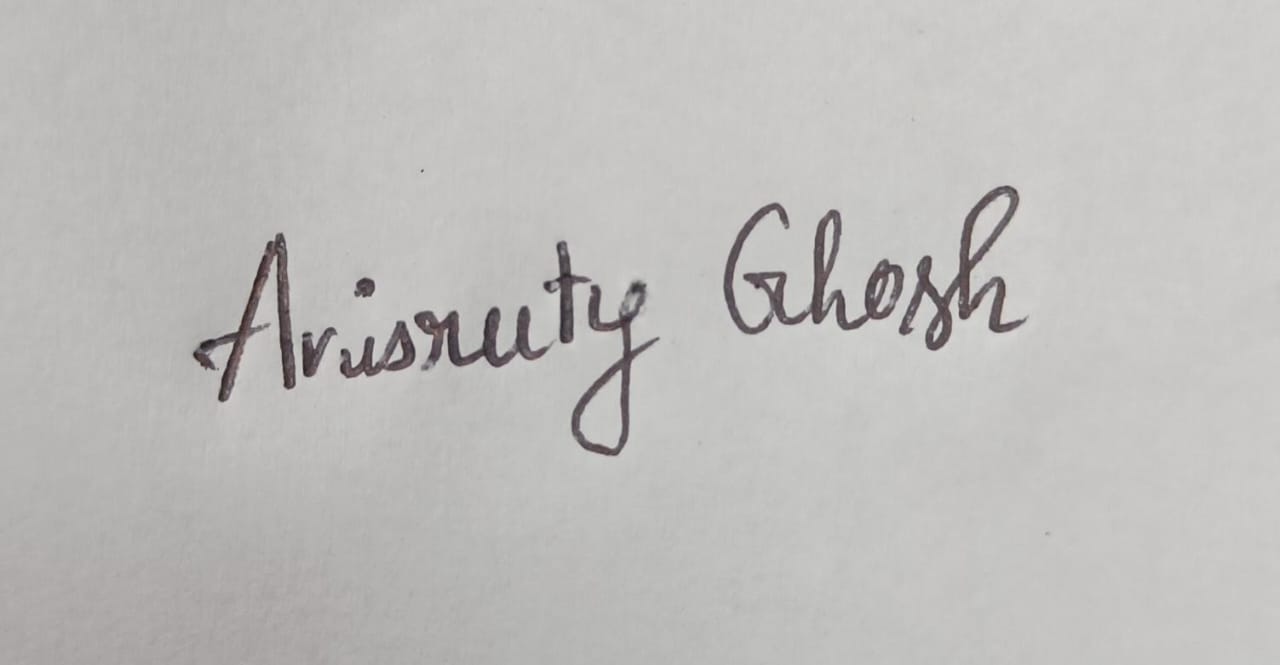 Avisruty Ghosh